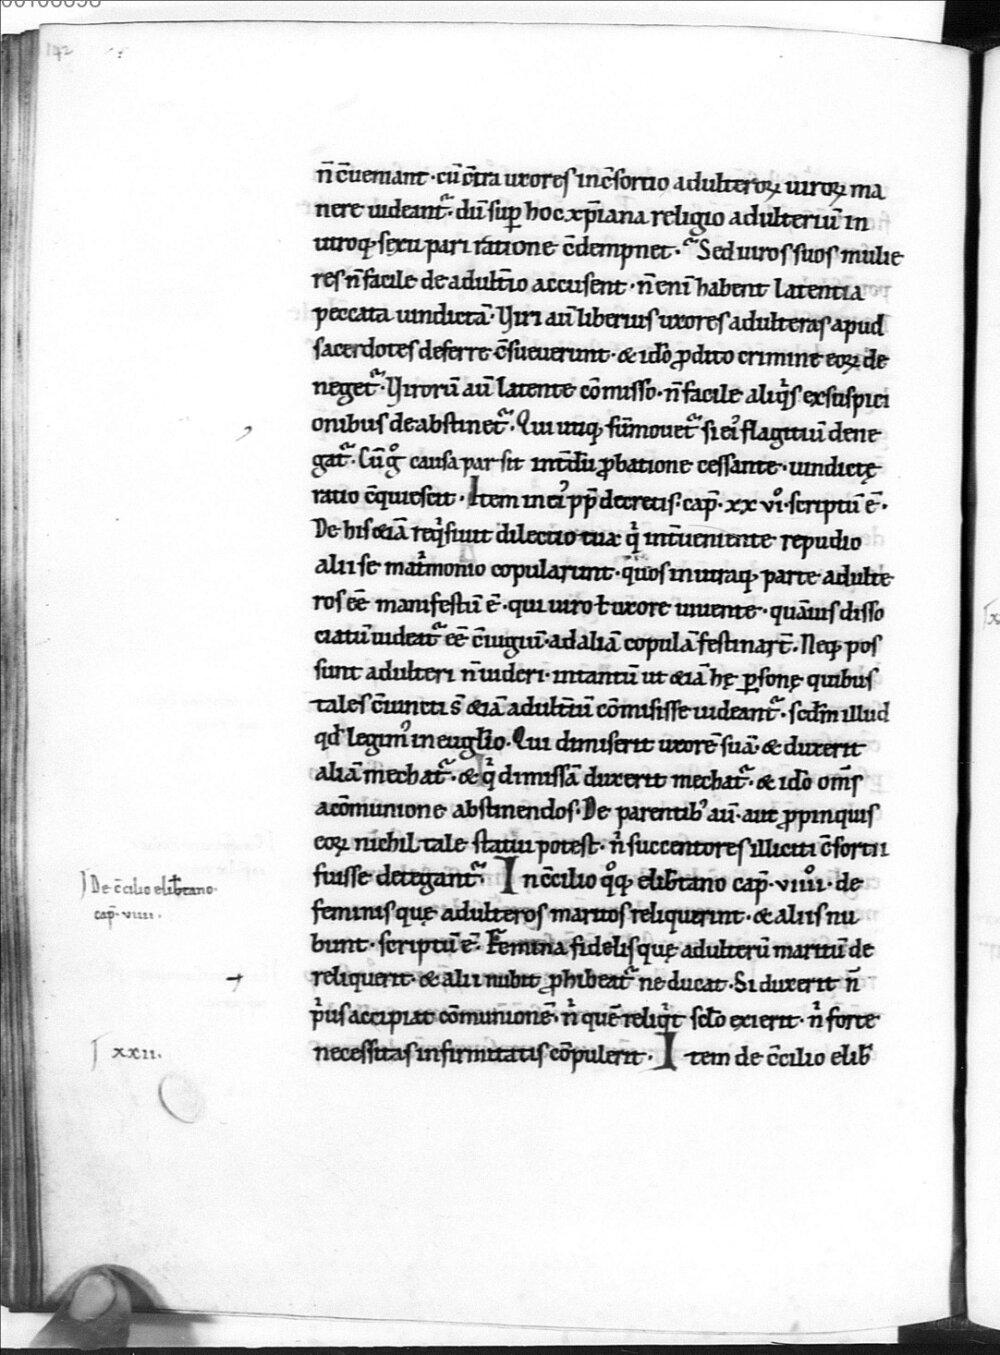 142
n̄ c̄ueniant · cū c̄tra uxores in c̄sortio adulteroꝝ uiroꝝ ma
nere uideant᷑ · dū sup̄ hoc xp̄iana religio adulteriū in
utroq; sexu pari ratione c̄dempnet · Sed uiros suos mulie
res n̄ facile de adult̄io accusent · n̄ eni habent latentia
peccata uindictā · Viri aū liberius uxores adulteras apud
sacerdotes deferre c̄sueuerunt · & idō p̱dito crimine eoꝝ de
neget᷑ · Virorū aū latente cōmisso · n̄ facile aliqͥs ex suspici
onibus de abstinet᷑ · Qui utiq; sūmouet᷑ si eiꝰ flagitiū dene
gat᷑ · Cū gͦ causa par sit int̄dū ꝓbatione cessante · uindictę
ratio c̄quiescit · Item in eiꝰ pp̄ decretis · cap̄ · xxviͦ · scriptū ē ·
De his &iā reqͥsiuit dilectio tua qͥ int̄ueniente repudio
alii se matͥmonio copularunt · qͦs in utraq; parte adulte
ros eē manifestū ē · qui uiro ł uxore uiuente · quāuis disso
ciatū uideat᷑ eē c̄iugiū · ad aliā copulā festinart̄ · Neq; pos
sunt adulteri n̄ uideri · intantū ut &iā hę ꝑsonę quibus
tales c̄iuncti s̄ &iā adult̄iū cōmisisse uideant᷑ · scd̄m illud
qd̄ legimꝰ in euglio · Qui dimiserit uxorē suā · & duxerit
aliā mechat᷑ · & qͥ dimissā duxerit mechat᷑ · & idō om̄s
a cōmunione abstinendos · De parentibꝰ aū · aut ꝓpinquis
eoꝝ nichil tale statui potest · nͥ succentores illiciti c̄sortii
fuisse detegant᷑ · In c̄cilio qͦq; elib̄tano cap̄ · viiiiͦ · de
feminis quę adulteros maritos reliquerint · & aliis nu
bunt · scriptū ē · Femina fidelis quę adulterū maritū de
reliquerit · & alii nubit ꝓhibeat᷑ ne ducat · Si duxerit n̄
pͥus accipiat cōmunionē · nͥ quē reliqͥt sc̄lo exierit · nͥ forte
necessitas infirmitatis cōpulerit · Item de c̄cilio elib̄
De c̄cilio elib̄tano ·
cap̄ · viiii ·
xxii.